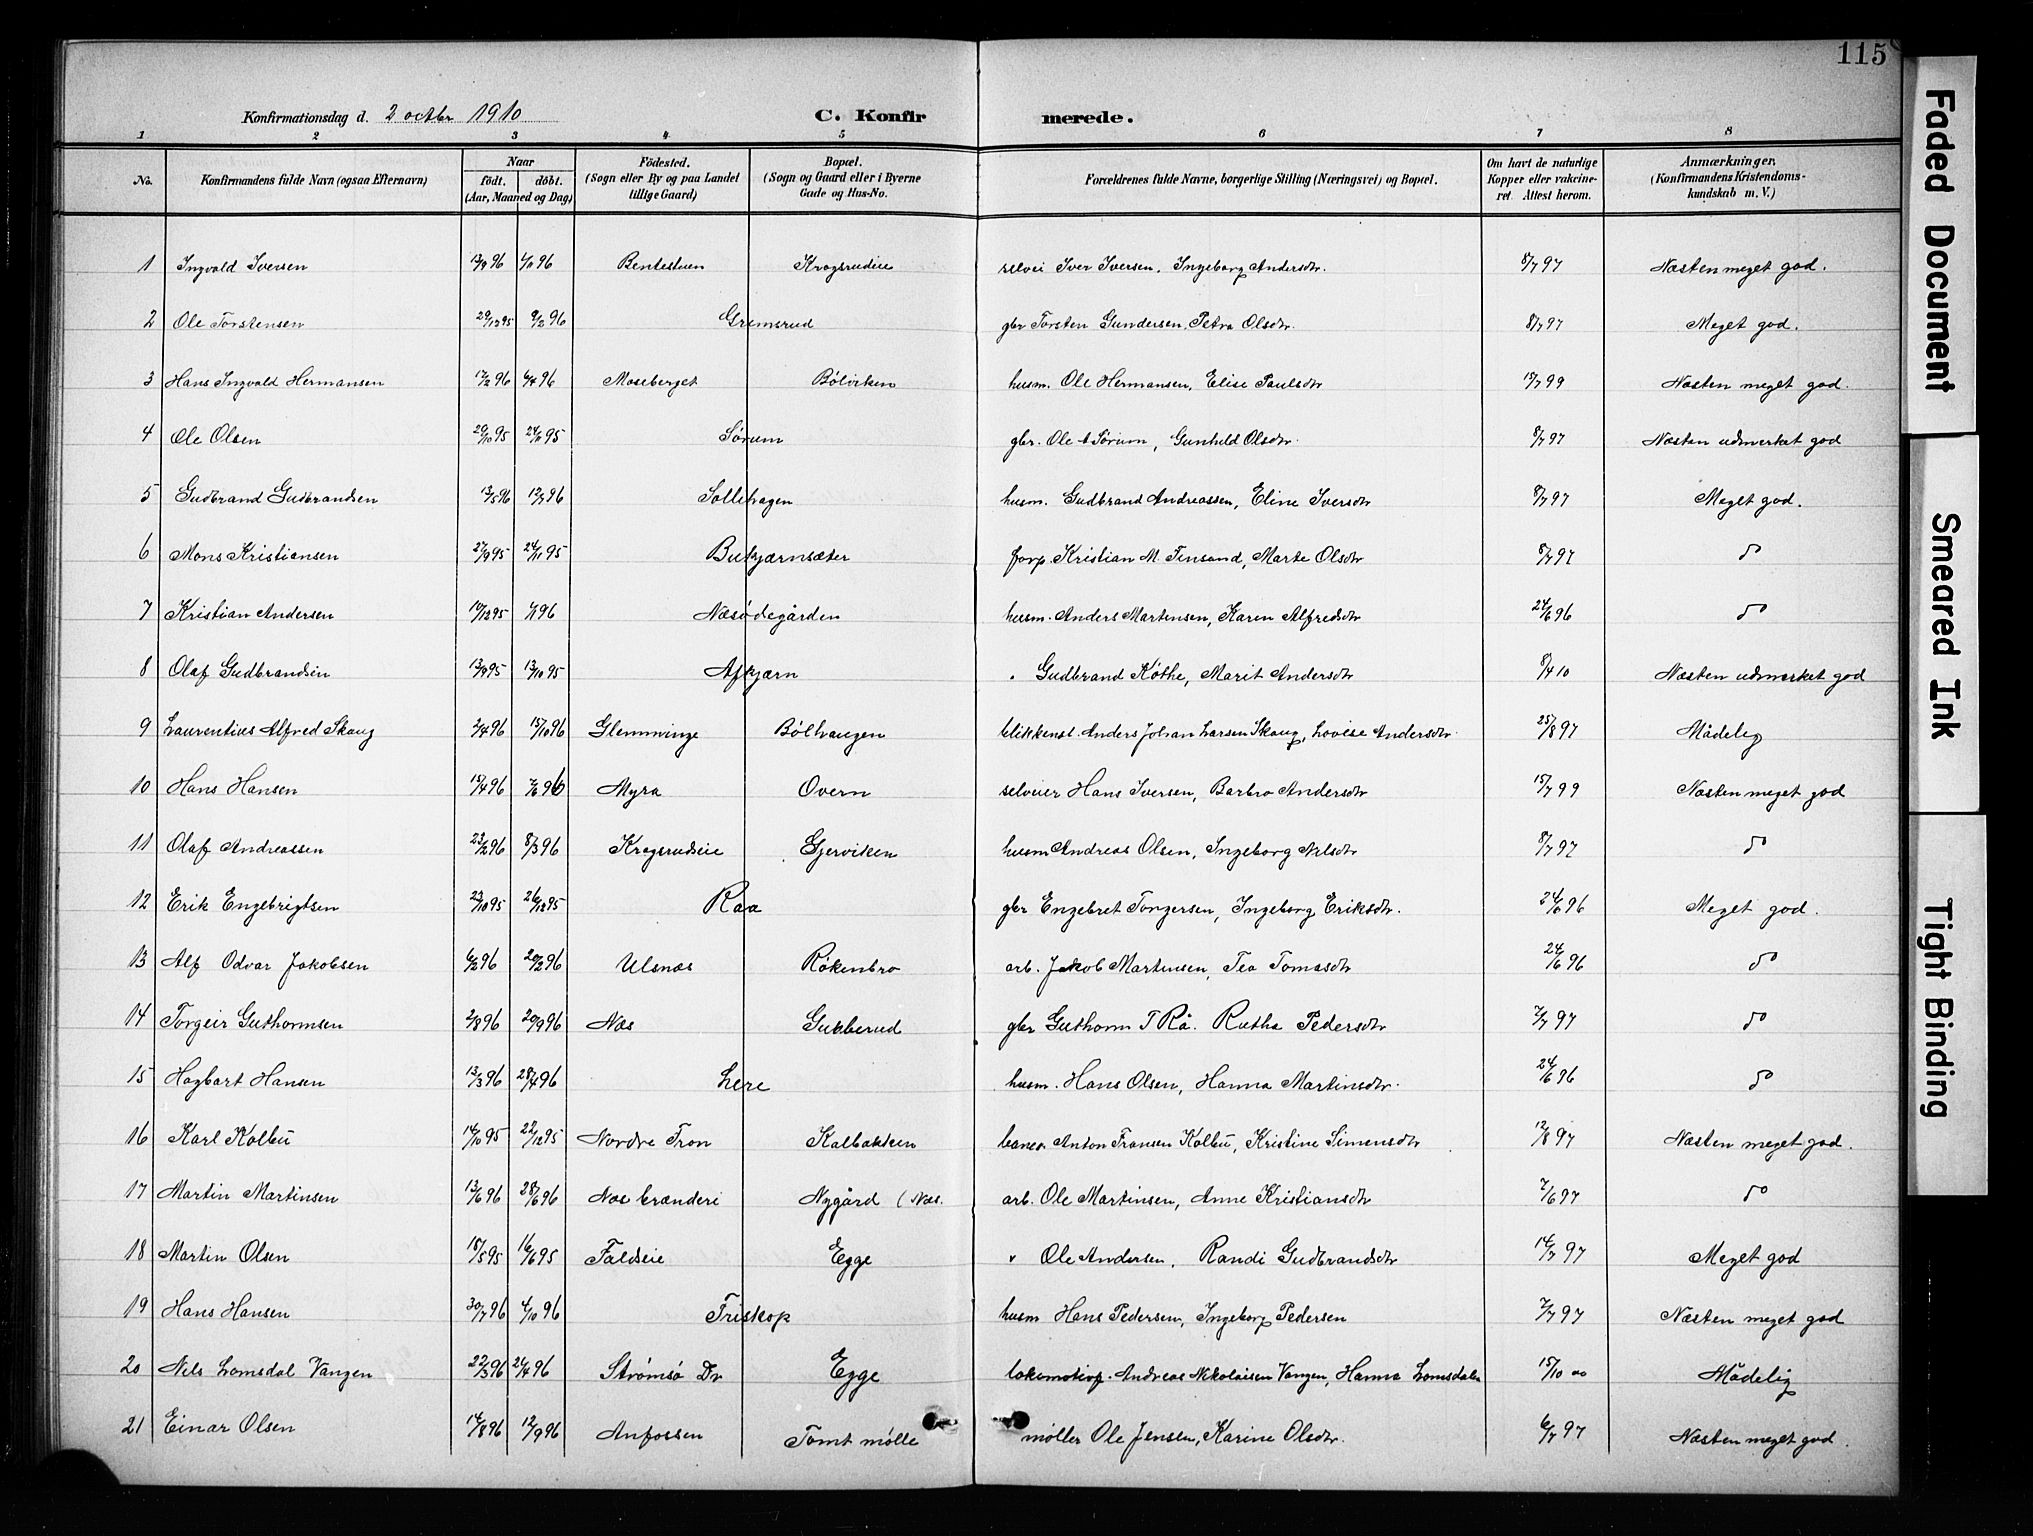 115
Konfirmationsdag d. 2 octbr 1910 C. Konfir merede.
1 2 3 4 5 6 7 8
No. Konfirmandens fulde Navn (ogsaa Efternavn) Naar født. døbt. (Aar, Maaned og Dag) Fødested. (Sogn eller By og paa Landet tillige Gaard) Bopæl. (Sogn og Gaard eller i Byerne Gade og Hus-No. Forældrenes fulde Navne, borgerlige Stilling (Næringsvei) og Bopæl. Om havt de naturlige Kopper eller vakcineret. Attest herom. Anmærkninger. (Konfirmandens Kristendomskundskab m. V.)
1 Ingvald Iversen 13/9 96 4/10 96 Bentestuen Krogsrudeie selvei Iver Iversen, Ingeborg Andersdtr. 8/7 97 Næsten meget god.
2 Ole Torstensen 29/12 95 9/2 96 Gremsrud gbr Torsten Gundersen, Petra Olsdtr. 8/7 97 Meget god.
3 Hans Ingvald Hermansen 17/2 96 6/4 96 Moseberget Bølviken husm. Ole Hermansen, Elise Paulsdtr 15/7 99 Næsten meget god.
4 Ole Olsen 29/10 95 24/11 95 Sørum gbr. Ole A Sørum, Gunhild Olsdtr. 8/7 97 Næsten udmerket god
5 Gudbrand Gudbrandsen 13/5 96 12/7 96 Sollihagen husm. Gudbrand Andreassen, Eline Iversdtr 8/7 97 Meget god.
6 Mons Kristiansen 27/9 95 24/11 95 Bukjærnsæter forp. Kristian M. Finsand, Marte Olsdtr 8/7 97 do
7 Kristian Andersen 10/12 95 1/1 96 Næsødegården husm. Anders Martensen, Karen Alfredsdtr 24/6 96 do
8 Olaf Gudbrandsen 13/9 95 13/10 95 Afkjærn " Gudbrand Køthe, Marit Andersdtr 8/4 10 Næsten udmerket god
9 Laurentius Alfred Skaug 2/4 96 15/10 96 Glemminge Bølhaugen blikkensl. Anders Johan Larsen Skaug, Lovise Andersdtr. 25/8 97 Mådelig
10 Hans Hansen 15/4 96 7/6 96 Myra Overn selveier Hans Iversen, Barbro Andersdtr 15/7 99 Næsten meget god
11 Olaf Andreassen 23/2 96 8/3 96 Krogsrudeie Gjerviken husm Andreas Olsen, Ingeborg Nilsdtr 8/7 97 do
12 Erik Engebrigtsen 23/10 95 26/12 95 Raa gbr Engebret Torgersen, Ingeborg Eriksdtr. 24/6 96 Meget god.
13 Alf Odvar Jakobsen 6/2 96 20/2 96 Ulsnæs Røkenbro arb. Jakob Martinsen, Tea Tomasdtr 24/6 96 do
14 Torgeir Guthormsen 2/8 96 20/9 96 Næs Gubberud gbr Guthorm T Rå. Rutha Pedersdtr 7/7 97 do
15 Hagbart Hansen 13/3 96 28/4 96 Lere husm. Hans Olsen, Hanna Martinsdtr. 24/6 96 do
16 Karl Kolbu 14/10 95 22/12 95 Nordre Fron Kalbakken banev. Anton Fransen Kolbu, Kristine Simensdtr 12/8 97 Næsten meget god.
17 Martin Martinsen 13/6 96 28/6 96 Næs brænderi Nygård (Næs. arb. Ole Martinsen, Anne Kristiansdtr 7/6 97 do
18 Martin Olsen 15/5 95 16/6 95 Faldseie Egge " Ole Andersen, Randi Gudbrandsdtr 14/7 97 Meget god
19 Hans Hansen 30/7 96 4/10 96 Friskop husm Hans Pedersen, Ingeborg Pedersen 7/7 97 Næsten meget god
20 Nels Lomsdal Vangen 22/3 96 24/4 96 Strømsø Dr Egge lokomotivf. Andreas Nikolaisen Vangen, Hanna Lomsdalen 15/10 00 Mådelig
21 Einar Olsen 14/8 96 12/9 96 Anfossen Tomt mølle møller Ole Jensen, Karine Olsdtr. 6/7 97 Næsten meget god.
Faded Document
Smeared Ink
Tight Binding